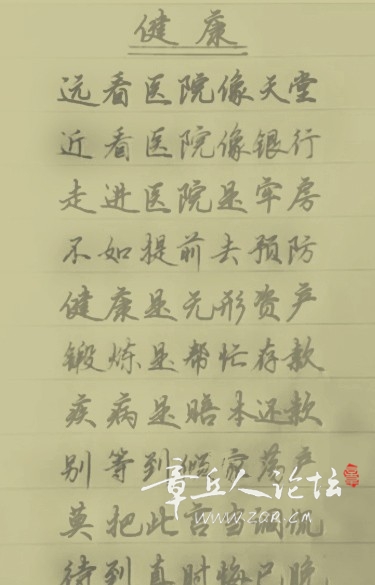 健康
远看医院像天堂
近看医院像银行
走进医院是牢房
不如提前去预防
健康是无形资产
锻炼是帮忙存款
疾病是赔本还款
别等到倾家荡产
章丘人论坛
www.ZQR.CN
莫把此言当
待到真时悔已晚